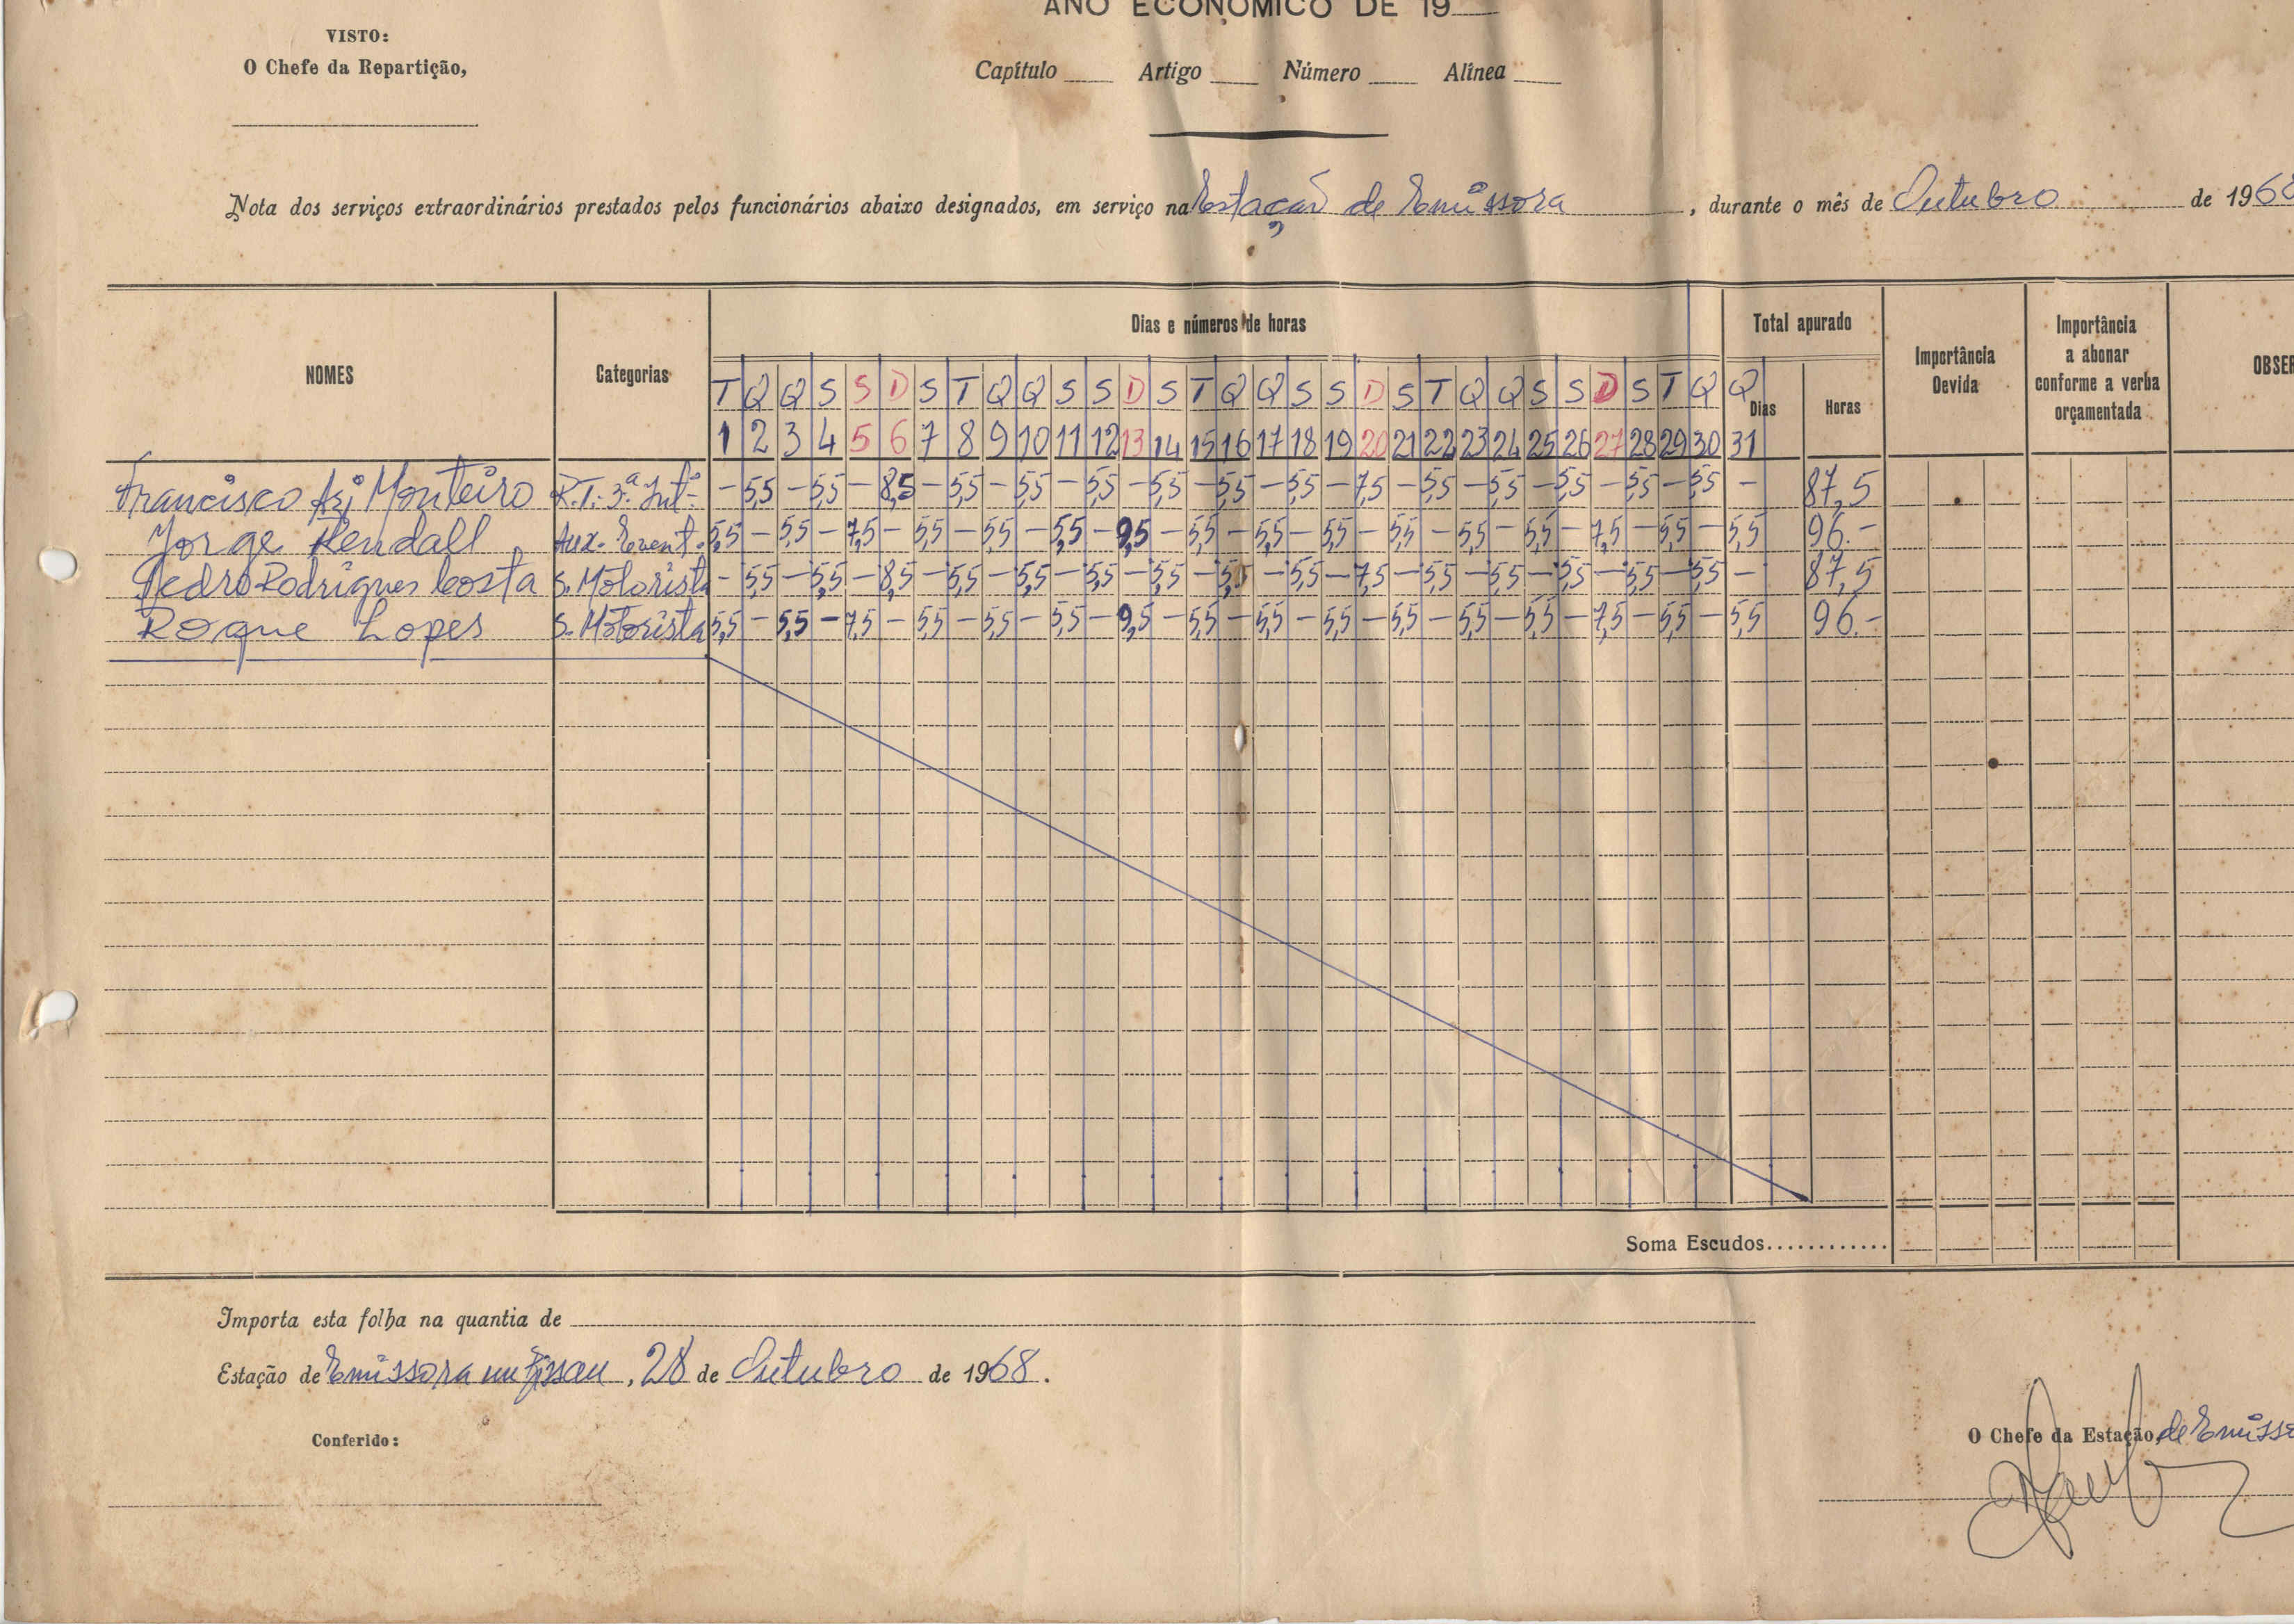 ANO ECONÓMICO DE 19
VISTO:
O Chefe da Repartição,
Capítulo Artigo Número Alínea
Nota dos serviços extraordinários prestados pelos funcionários abaixo designados, em serviço na Estação de Emissora, durante o mês de Outubro de 196
NOMES Categorias Dias e números de horas Total apurado Importância Devida Importância a abonar conforme a verba orçamentada OBSER
T Q Q S S D S T Q Q S S D S T Q Q S S D S T Q Q S S D S T Q Q Dias Horas
1 2 3 4 5 6 7 8 9 10 11 12 13 14 15 16 17 18 19 20 21 22 23 24 25 26 27 28 29 30 31
Francisco Monteiro R.T. 3.ª Int. - 5,5 - 5,5 - 8,5 - 5,5 - 5,5 - 5,5 - 5,5 - 5,5 - 5,5 - 7,5 - 5,5 - 5,5 - 5,5 - 5,5 - 5,5 - 87,5
Jorge Rendall Aux. Event. 5,5 - 5,5 - 7,5 - 5,5 - 5,5 - 5,5 - 9,5 - 5,5 - 5,5 - 5,5 - 5,5 - 5,5 - 5,5 - 7,5 - 5,5 - 5,5 96.-
Pedro Rodrigues Costa S. Motorista - 5,5 - 5,5 - 8,5 - 5,5 - 5,5 - 5,5 - 5,5 - 5,5 - 5,5 - 7,5 - 5,5 - 5,5 - 5,5 - 5,5 - 5,5 - 87,5
Roque Lopes S. Motorista 5,5 - 5,5 - 7,5 - 5,5 - 5,5 - 5,5 - 9,5 - 5,5 - 5,5 - 5,5 - 5,5 - 5,5 - 5,5 - 7,5 - 5,5 - 5,5 96.-
Soma Escudos............
Importa esta folha na quantia de
Estação de Emissora em Bissau, 28 de Outubro de 1968.
Conferido:
O Chefe da Estação de Emisso